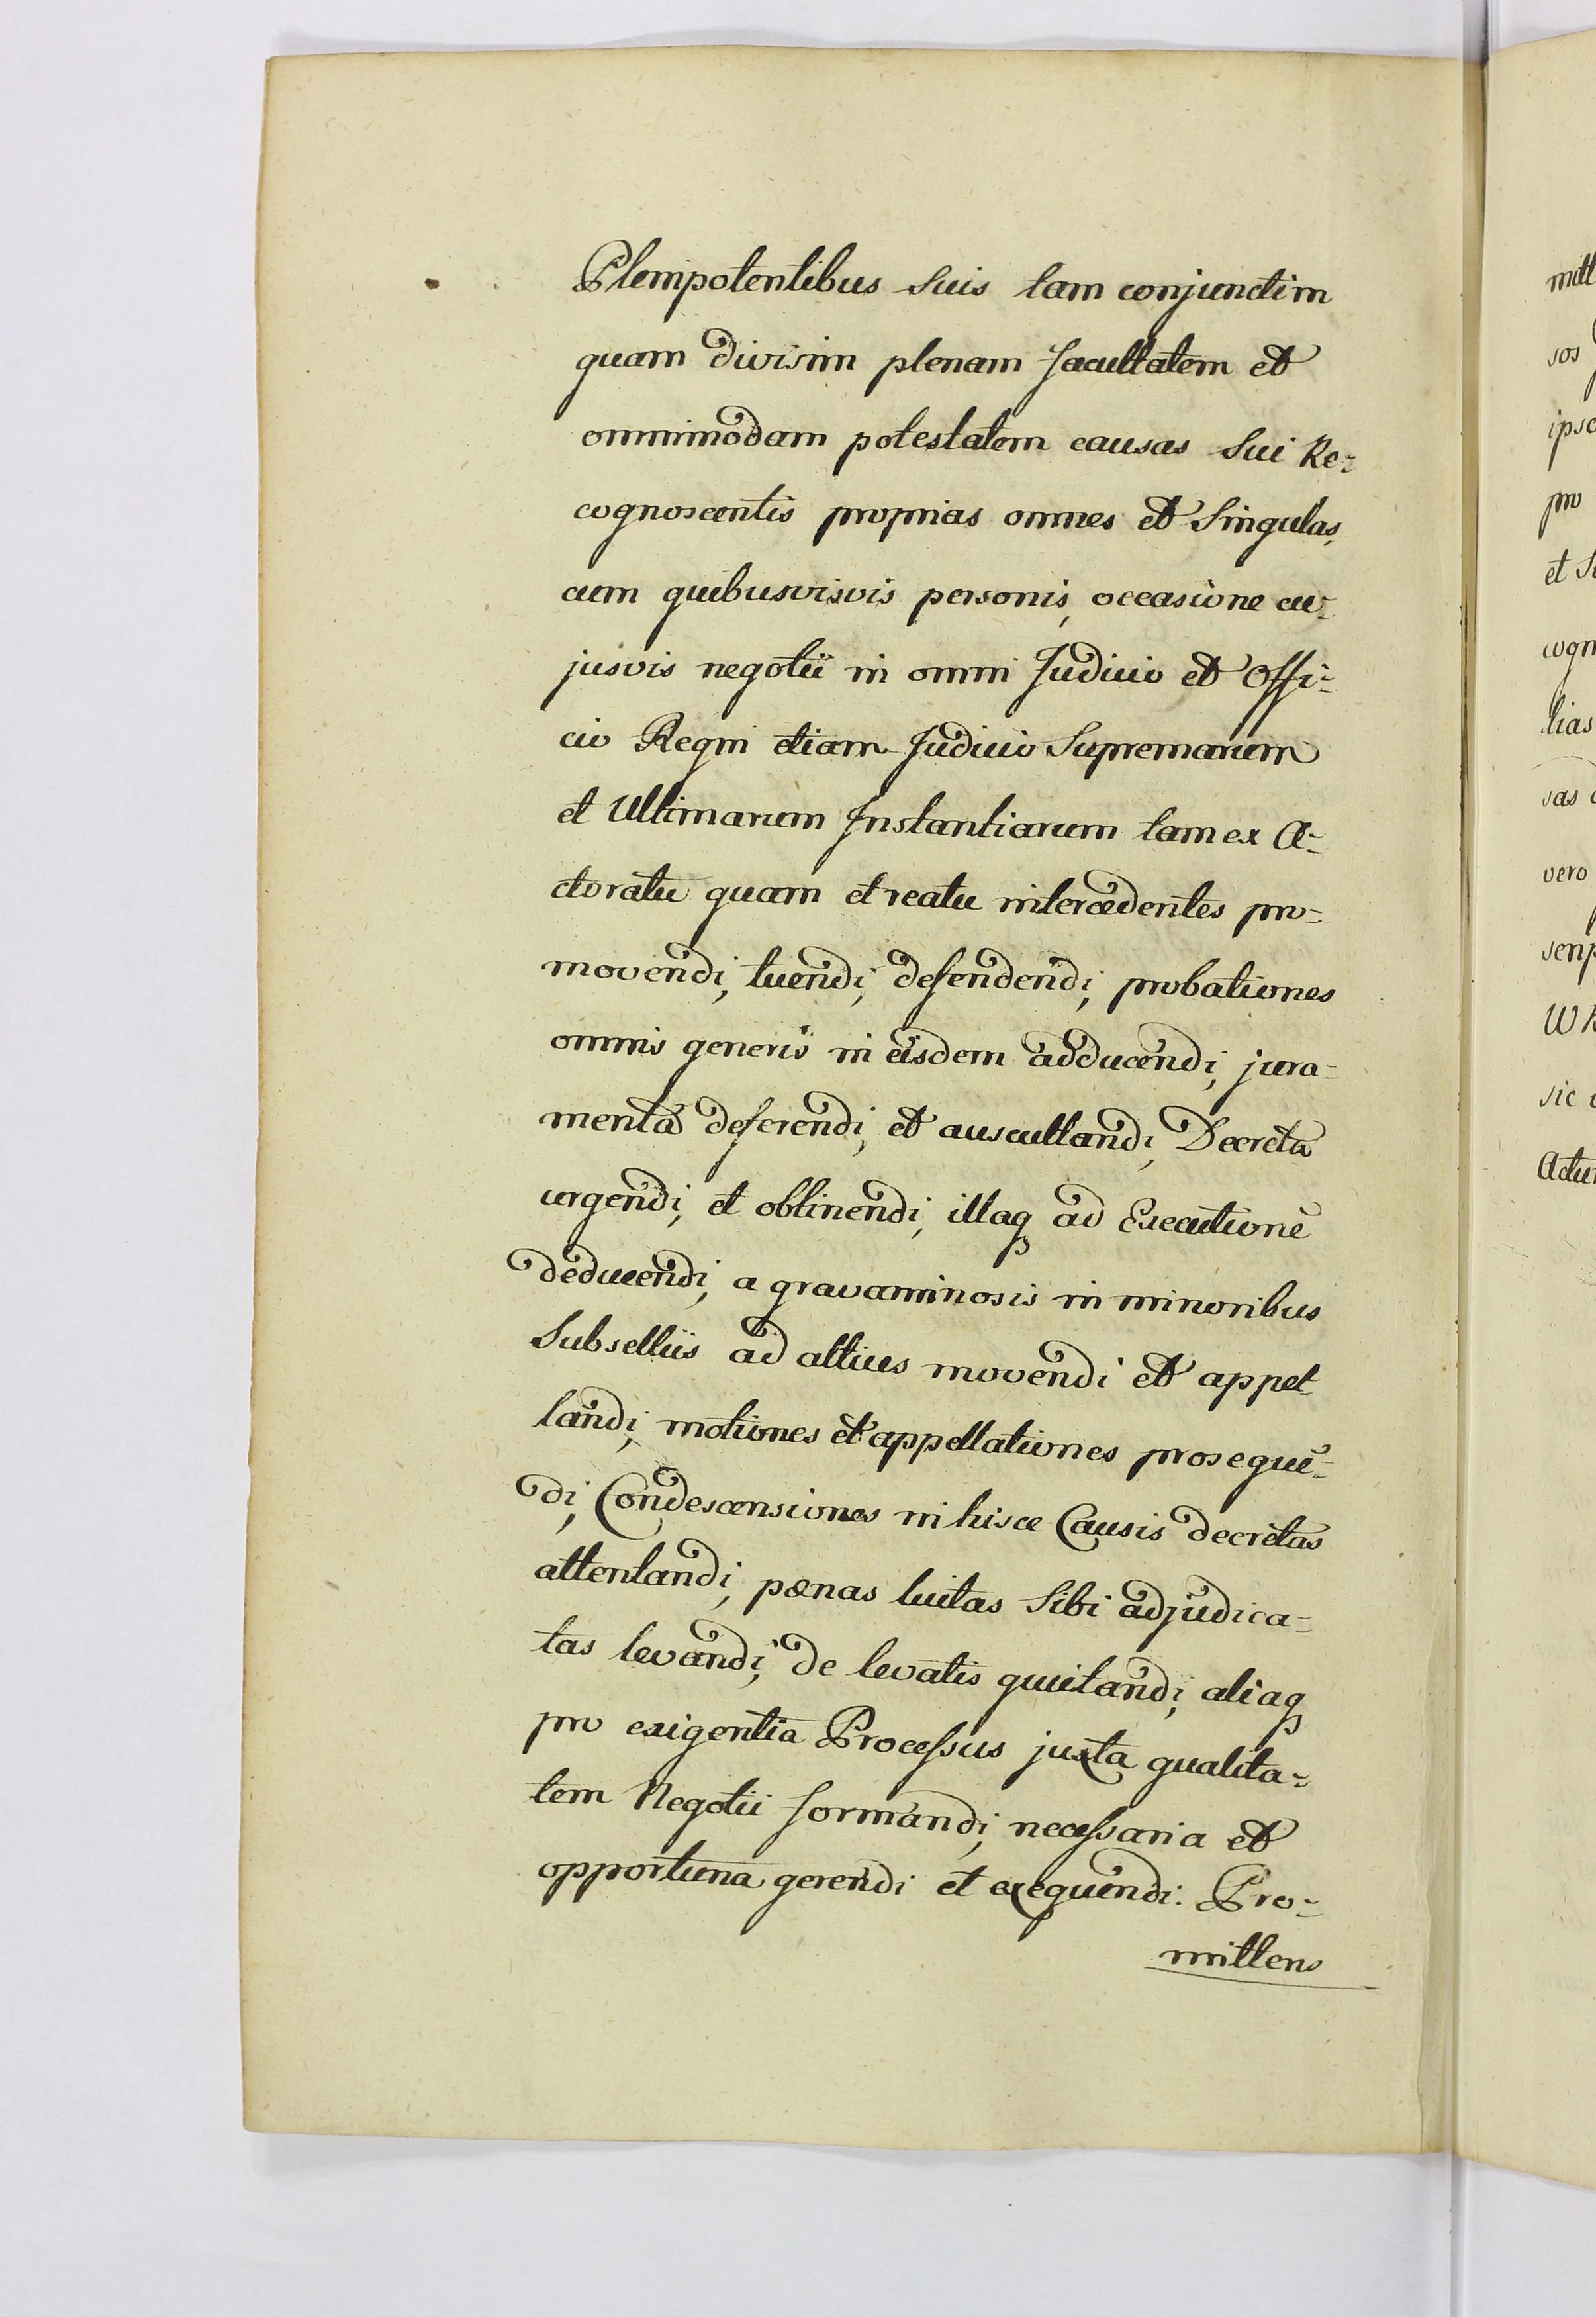 Plenipotentibus suis tam conjunctim
quam divisim plenam facultatem et
omnimodam potestatem causas sui Re-
cognoscentis proprias omnes et singulas,
cum quibusvisvis personis, occasione cu-
jusvis negotii in omni Judicio et Offi-
cio Regni etiam Judicio Supremarum
et Ultimarum Instantiarum tam ex A-
ctoratu quam et reatu intercedentes pro-
movendi, tuendi, defendendi, probationes
omnis generis in eisdem adducendi, jura-
menta deferendi, et auscultandi, Decreta
urgendi, et obtinendi, illaq ad Executionē
deducendi, a gravaminosis in minoribus
Subselliis ad altius movendi et appel
landi, motiones et appellationes prosequē-
di, Condescensiones in hisce Causis decretas
attentandi, pœnas luitas sibi adjudica-
tas levandi, de levatis quuitandi, aliaq
pro exigentia Processus juxta qualita-
tem Negotii formandi, necessaria et
opportuna gerendi et exequendi. Pro-
mittens
mitt
sos
ipso
pro
et S
cogn
lias
sas
vero
scrip
sic
Actu